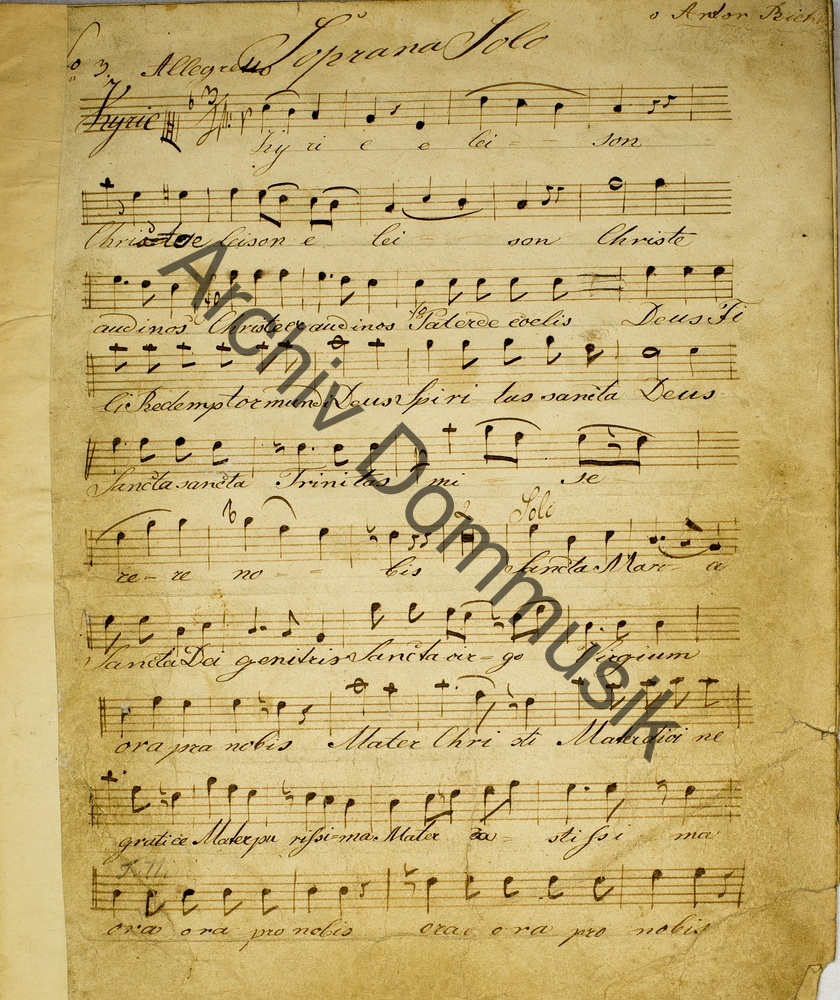 Soprana Solo
3. Allegretto
Kyrie Ky ri e e lei - - son
Christe e leison e lei son Christe
audi nos Christe ex audi nos Pater de coelis Deus Fi
li Redemptor mundi Deus Spiri tus sancta Deus
Sancta sancta Trinitas mi se
re - re no - - bis Solo Sancta Mari - a
Sancta Dei genitrix Sancta vir - go Virgium
ora pra nobis Mater Chri sti Mater divi ne
gratiæ Mater pu rissi = ma Mater ca stissi - ma
ora ora pro nobis ora ora pro nobis
Archiv Dommusik